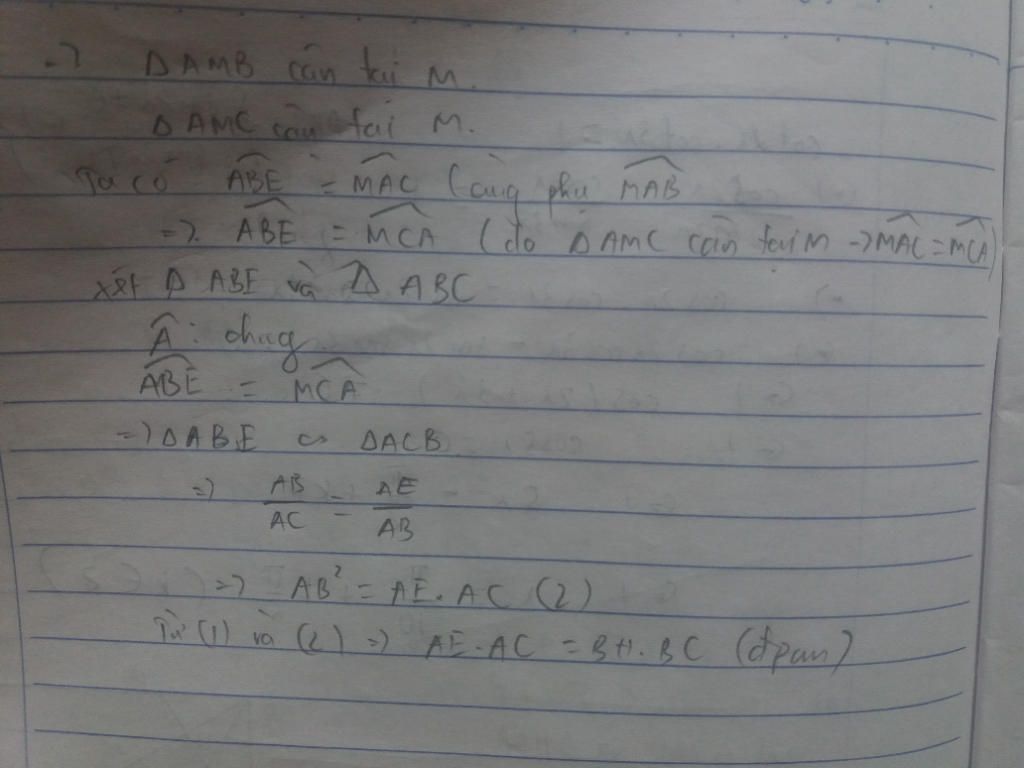 => ΔAMB cân tại M.
ΔAMC cân tại M.
Ta có \widehat{ABE} = \widehat{MAC} (cùng phụ \widehat{MAB}
=> \widehat{ABE} = \widehat{MCA} (do ΔAMC cân tại M -> \widehat{MAC} = \widehat{MCA})
xét Δ ABE và Δ ABC
\widehat{A}: chung
\widehat{ABE} = \widehat{MCA}
=> ΔABE ∽ ΔACB
=> \frac{AB}{AC} = \frac{AE}{AB}
=> AB² = AE.AC (2)
Từ (1) và (2) => AE.AC = BH.BC (đpcm)